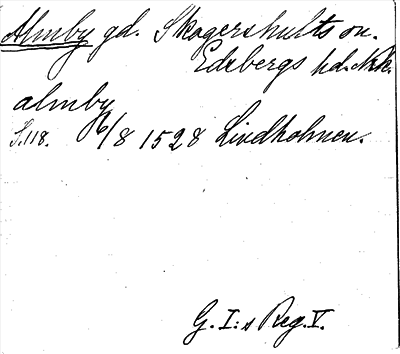 Almby gd. Skagershults sn.
Edsbergs hd. Nke.
almby
S. 118. 16/8 1528 Lindholmen.
G. I:s Reg. V.